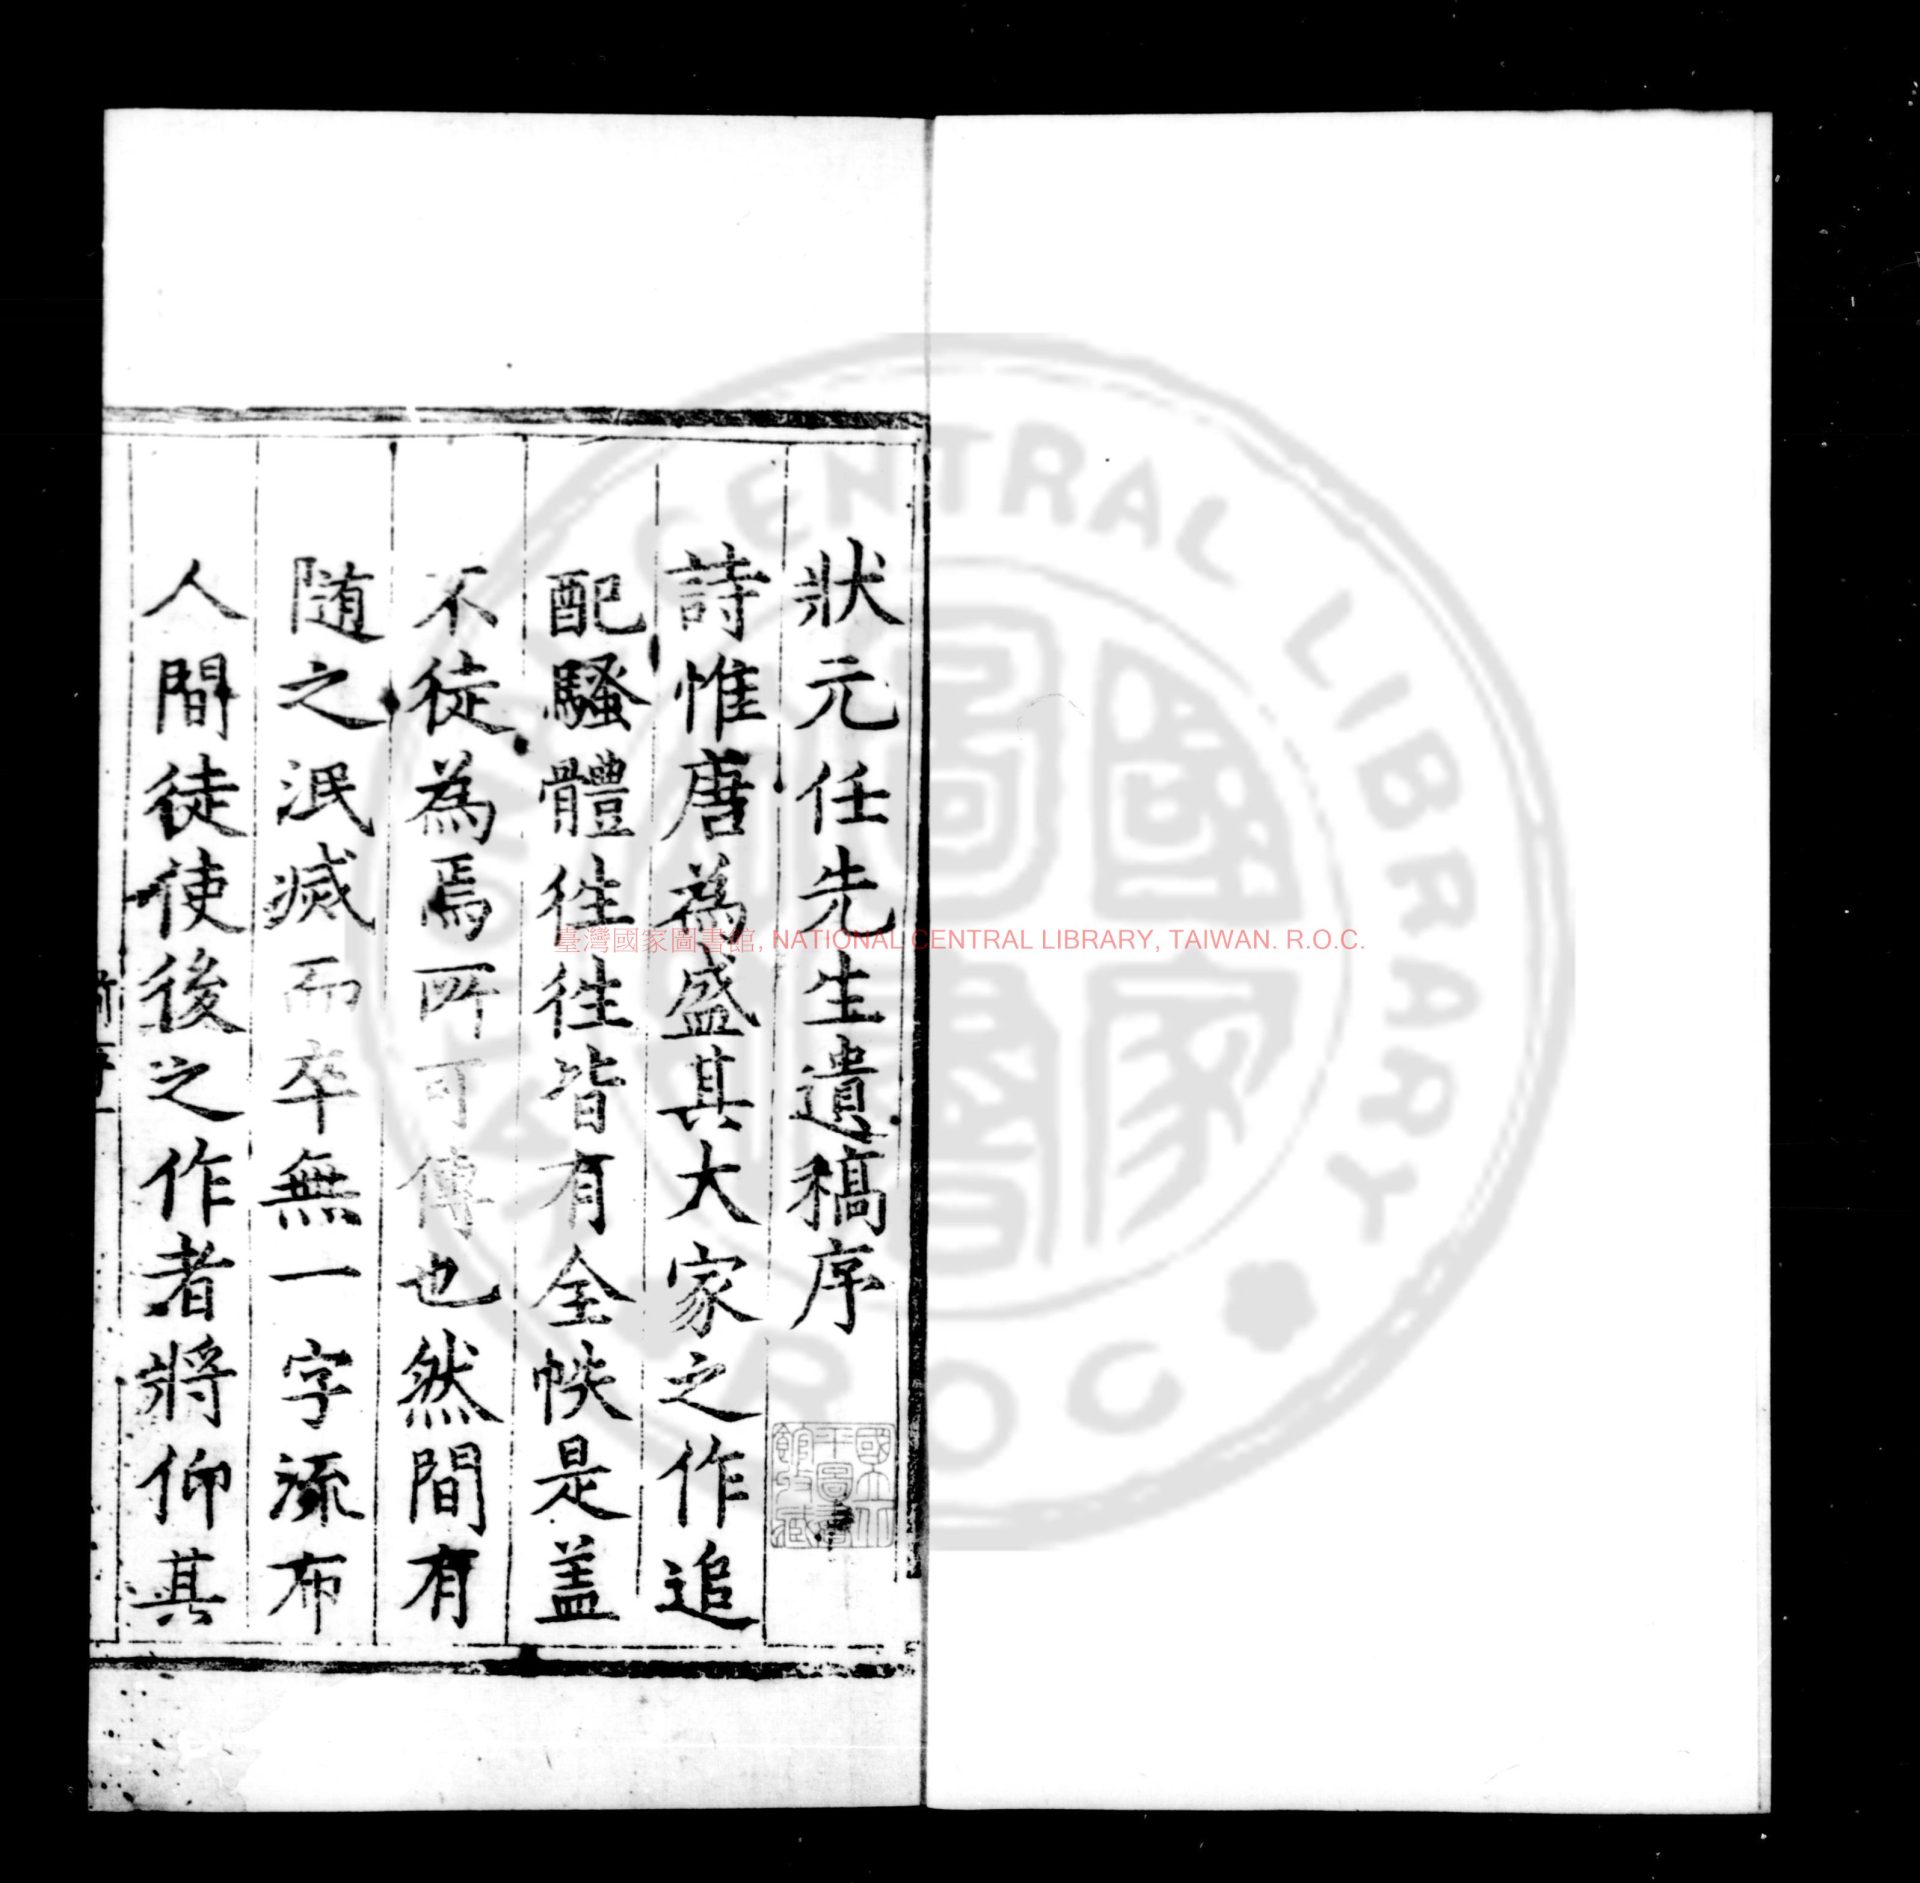 狀元任先生遺稿序
詩惟唐為盛其大家之作追
配騷體徃徃皆有全帙是盖
不徒為焉所可傳也然間有
随之泯滅而卒無一字流布
人間徒使後之作者將仰其
國立北平圖書館收藏
臺灣國家圖書館, NATIONAL CENTRAL LIBRARY, TAIWAN. R.O.C.
CENTRAL LIBRARY
R.O.C
國家圖書